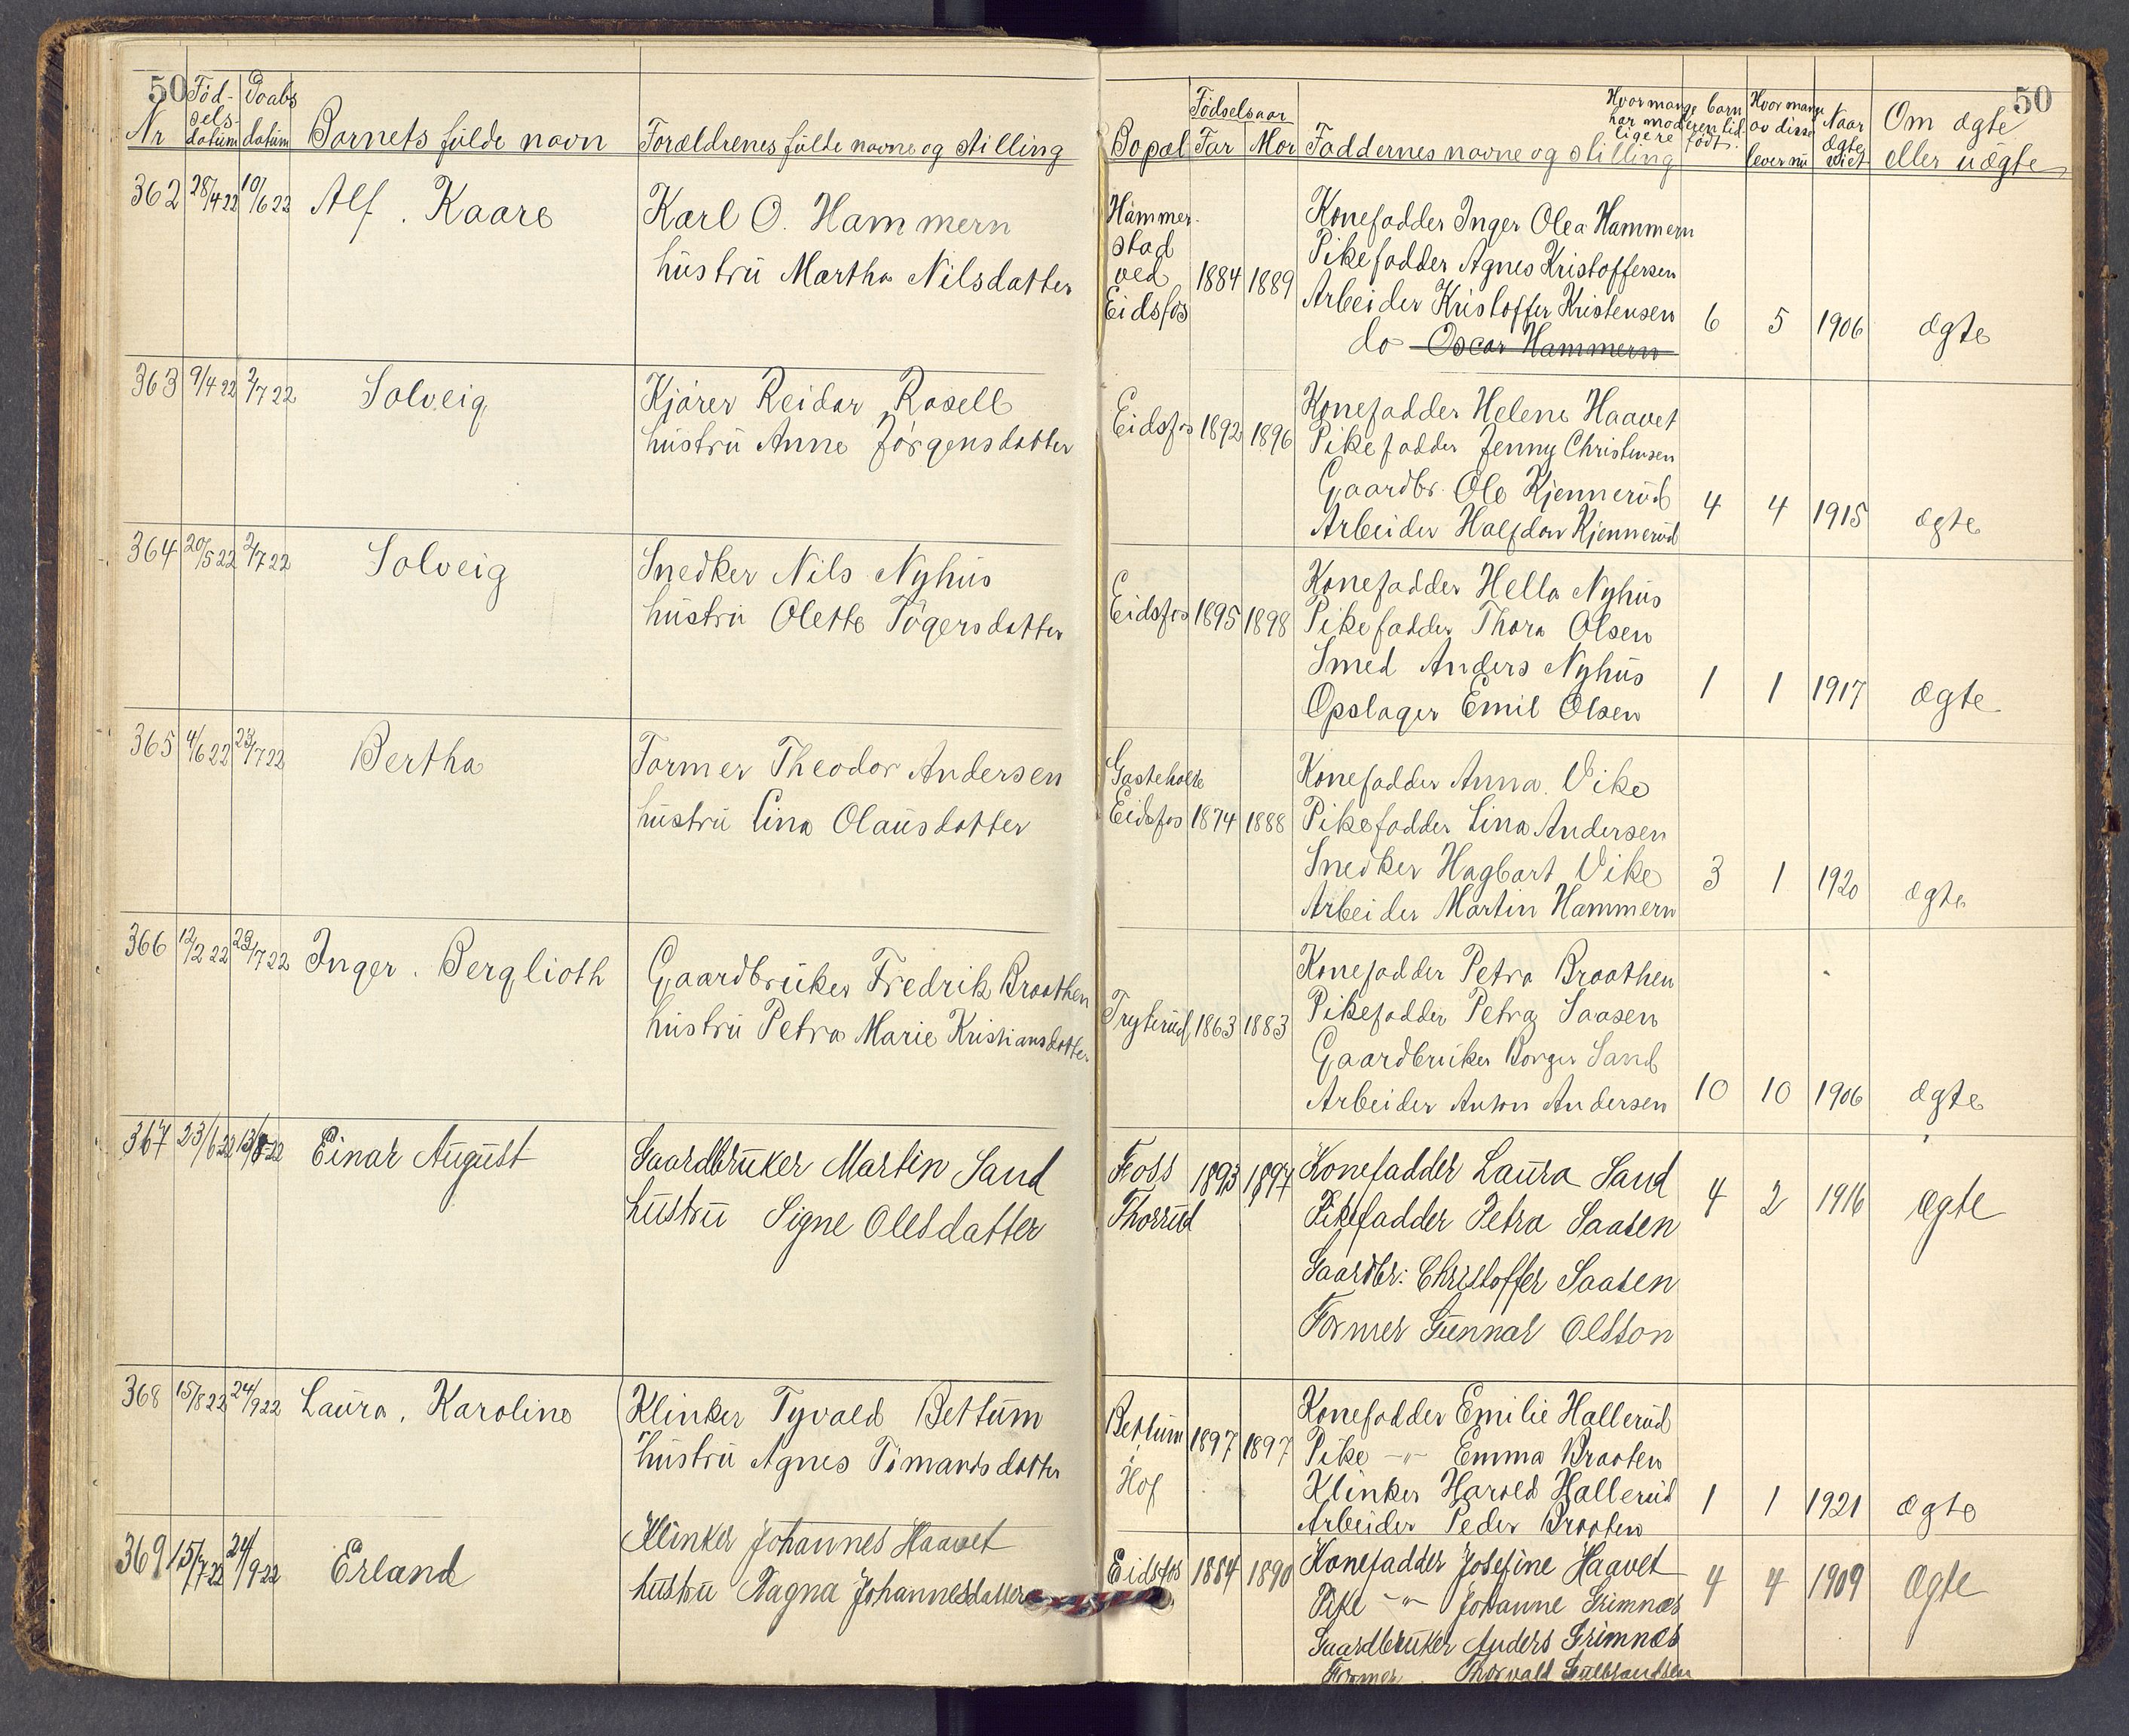 50
50
Nr
Föd-
sels-
datum
Daabs
datum
Barnets fulde navn
Forældrenes fulde navne og stilling
Bopæl
Födselsaar
Far
Mor
Faddernes navne og stilling
Hvormange barn
har moderen tid-
ligere födt.
Hvor mange
av disse
lever nu
Naar
ægte
viet
Om ægte
eller uægte
362 28/4 22 10/6 22 Alf. Kaare
Karl O. Hammern
hustru Martha Nilsdatter
Hammer-
stad
ved
Eidsfos
1884 1889
Konefadder Inger Olea Hammern
Pikefadder Agnes Kristoffersen
Arbeider Kristoffer Kristensen
do Oscar Hammern
6 5 1906 ægte
363 9/4 22 2/7 22 Solveig
Kjörer Reidar Rosell
hustru Anne Jörgensdatter
Eidsfos 1892 1896
Konefadder Helene Haavet
Pikefadder Jenny Christensen
Gaardbr. Ole Kjennerud
Arbeider Halfdan Kjennerud
4 4 1915 ægte
364 20/5 22 2/7 22 Solveig
Snedker Nils Nyhus
hustru Olette Tögersdatter
Eidsfos 1895 1898
Konefadder Hella Nyhus
Pikefadder Thora Olsen
Smed Anders Nyhus
Opslager Emil Olsen
1 1 1917 ægte
365 4/6 22 23/7 22 Bertha
Former Theodor Andersen
hustru Lina Olausdatter
Gasteholte
Eidsfos 1874 1888
Konefadder Anna Vike
Pikefadder Lina Andersen
Snedker Hagbart Vike
Arbeider Martin Hammern
3 1 1920 ægte
366 12/2 22 23/7 22 Inger. Berglioth
Gaardbruker Fredrik Braathen
hustru Petra Marie Kristiansdatter
Tryterud 1863 1883
Konefadder Petra Braathen
Pikefadder Petra Saasen
Gaardbruker Borger Sand
Arbeider Anton Andersen
10 10 1906 ægte
367 23/6 22 13/8 22 Einar August
Gaardbruker Martin Sand
hustru Signe Olesdatter
Foss
Thorrud
1893 1897
Konefadder Laura Sand
Pikefadder Petra Saasen
Gaardbr: Christoffer Saasen
Former Gunnar Olsson
4 2 1916 ægte
368 15/8 22 24/9 22 Laura. Karoline
Klinker Tyvald Bettum
hustru Agnes Timandsdatter
Bettum
Hof
1897 1897
Konefadder Emilie Hallerud
Pike -"- Emma Braaten
Klinker Harald Hallerud
Arbeider Peder Braaten
1 1 1921 ægte
369 15/7 22 24/9 22 Erland
Klinker Johannes Haavet
hustru Ragna Johannesdatter
Eidsfos 1884 1890
Konefadder Josefine Haavet
Pike -"- Johanne Grimnæs
Gaardbruker Anders Grimnæs
Former Thorvald Gulbrandsen
4 4 1909 ægte